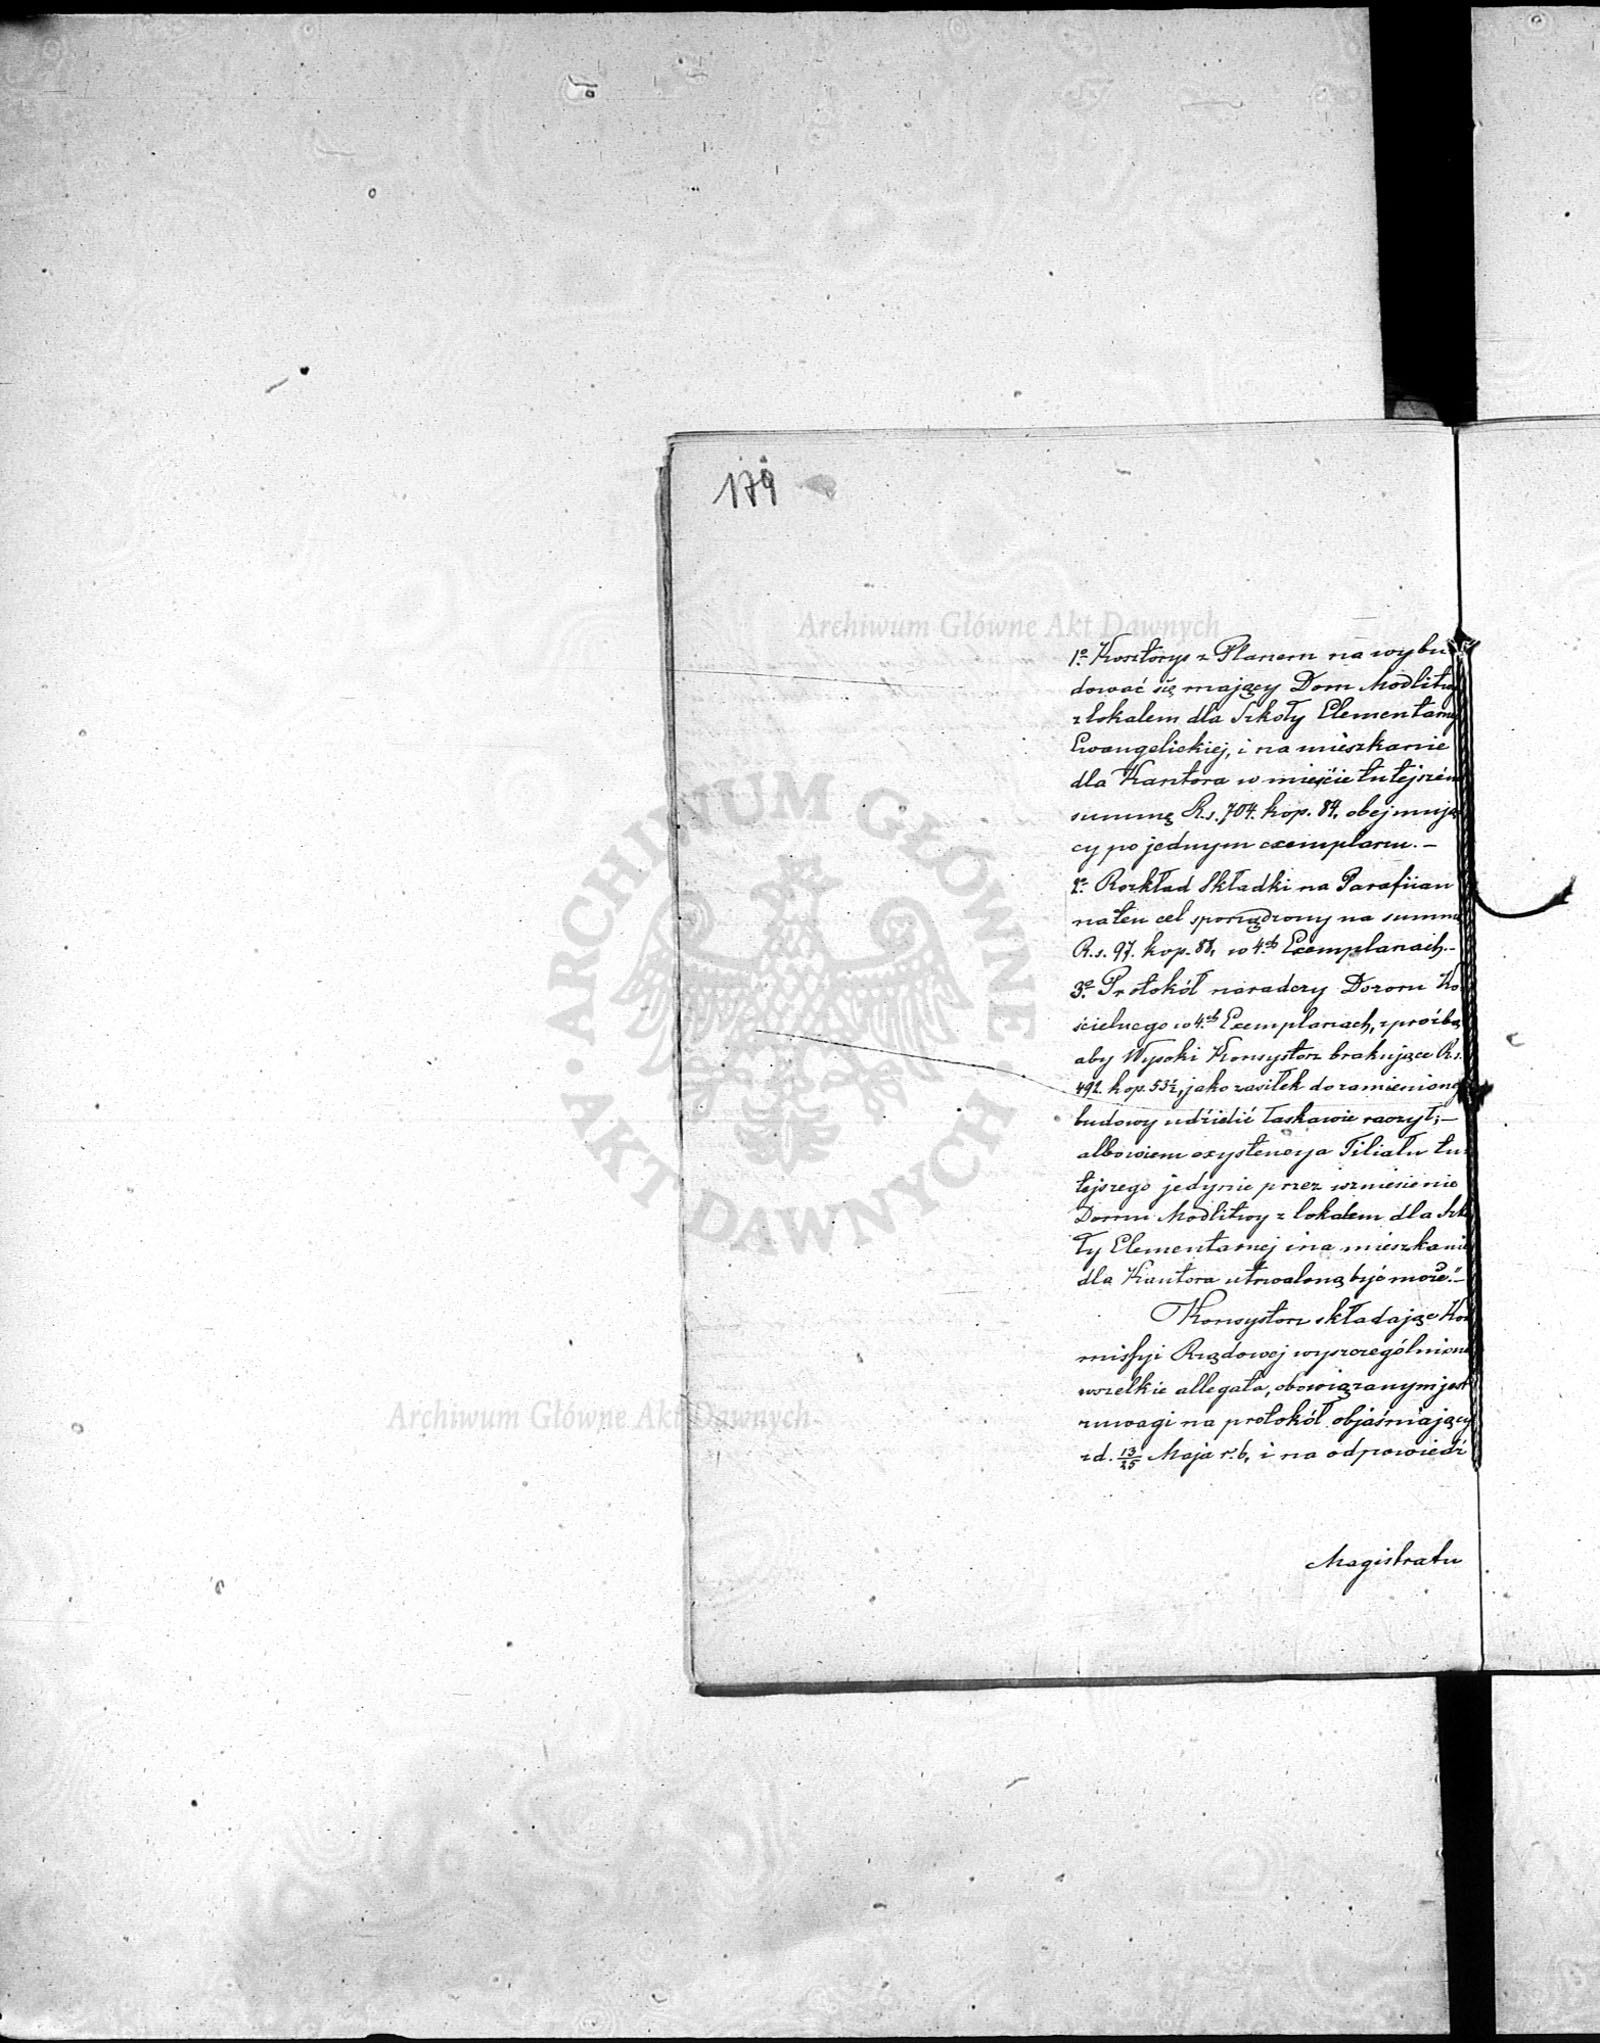 179
1o Kosztorys z Planem na wybu
dować się mający Dom Modlitwy
z lokalem dla Szkoły Elementarnej
Ewangelickiej, i na mieszkanie
dla Kantora w mieście tutejszém
summę R.s. 704. kop. 84, obejmują
cy po jednym exemplarzu. —
2o Rozkład Składki na Parafiian
na ten cel sporządzony na summę
R.s. 97. kop. 88, w 4ch Exemplarzach.—
3o Protokół naradczy Dozoru Ko
ścielnego w 4ch Exemplarzach, z prośbą
aby Wysoki Konsystorz brakujące R.s.
492. kop. 53½, jako zasiłek do zamienionej
budowy udzielić łaskawie raczył; —
albowiem exystencya Filiału tu
tejszego jedynie przez wzniesienie
Domu Modlitwy z lokalem dla Szko
ły Elementarnej i na mieszkanie
dla Kantora utrwaloną być może." —
Konsystorz składając Kom
missyi Rządowej wyszczególnione
wszelkie allegata, obowiązanym jest
z uwagi na protokół objaśniający
z d. 13/25 Maja r. b., i na odpowiedź
Magistratu
Archiwum Główne Akt Dawnych
ARCHIWUM GŁÓWNE
AKT DAWNYCH
Archiwum Główne Akt Dawnych